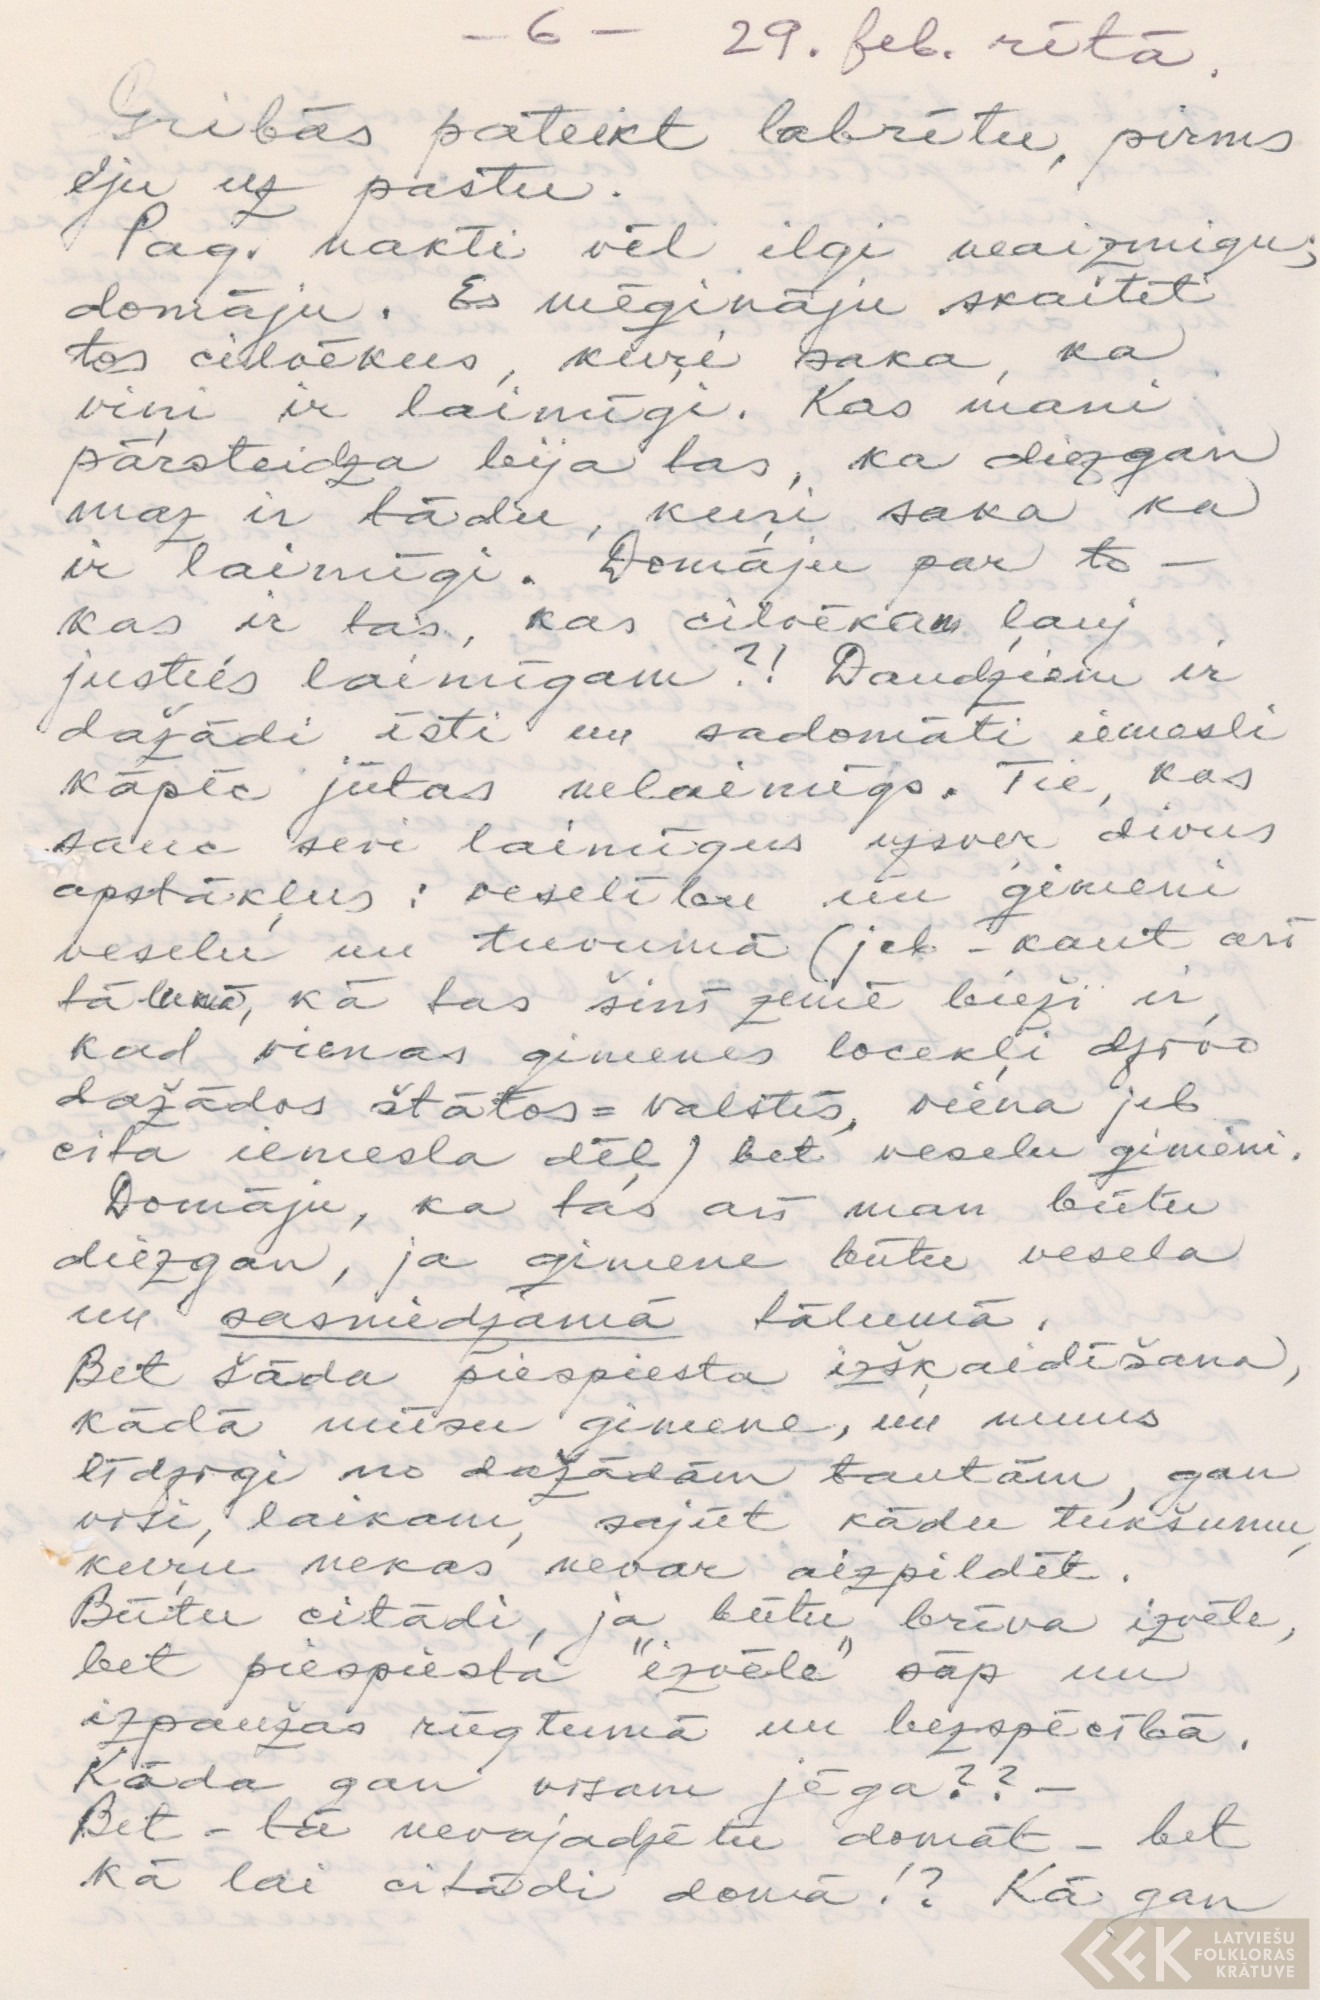 - 6 - 29. feb. rītā.
Gribās pateikt labrītu, pirms
eju uz pastu.
Pag. naktī vēl ilgi neaizmigu;
domāju. Es mēģināju skaitīt
tos cilvēkus, kuŗi saka, ka
viņi ir laimīgi. Kas mani
pārsteidza bija tas, ka diezgan
maz ir tādu, kuŗi saka ka
ir laimīgi. Domāju par to -
kas ir tas, kas cilvēkam ļauj
justies laimīgam?! Daudziem ir
dažādi īsti un sadomāti iemesli
kāpēc jūtas nelaimīgs. Tie, kas
sauc sevi laimīgus uzsver divus
apstākļus: veselību un ģimeni
veselu un tuvumā (jeb - kaut arī
tālumā, kā tas šinī zemē bieži ir,
kad vienas ģimenes locekļi dzīvo
dažādos štātos = valstīs, viena jeb
cita iemesla dēļ) bet veselu ģimeni.
Domāju, ka tas arī man būtu
diezgan, ja ģimene būtu vesela
un sasniedzamā tālumā.
Bet šāda piespiesta izšķaidīšana,
kādā mūsu ģimene, un mums
līdzīgi no dažādām tautām, gan
visi, laikam, sajūt kādu tukšumu,
kuŗu nekas nevar aizpildīt.
Būtu citādi, ja būtu brīva izvēle,
bet piespiesta "izvēle" sāp un
izpaužas rūgtumā un bezspēcībā.
Kāda gan visam jēga?? -
Bet - tā nevajadzētu domāt - bet
kā lai citādi domā!? Kā gan
LATVIEŠU
FOLKLORAS
KRĀTUVE